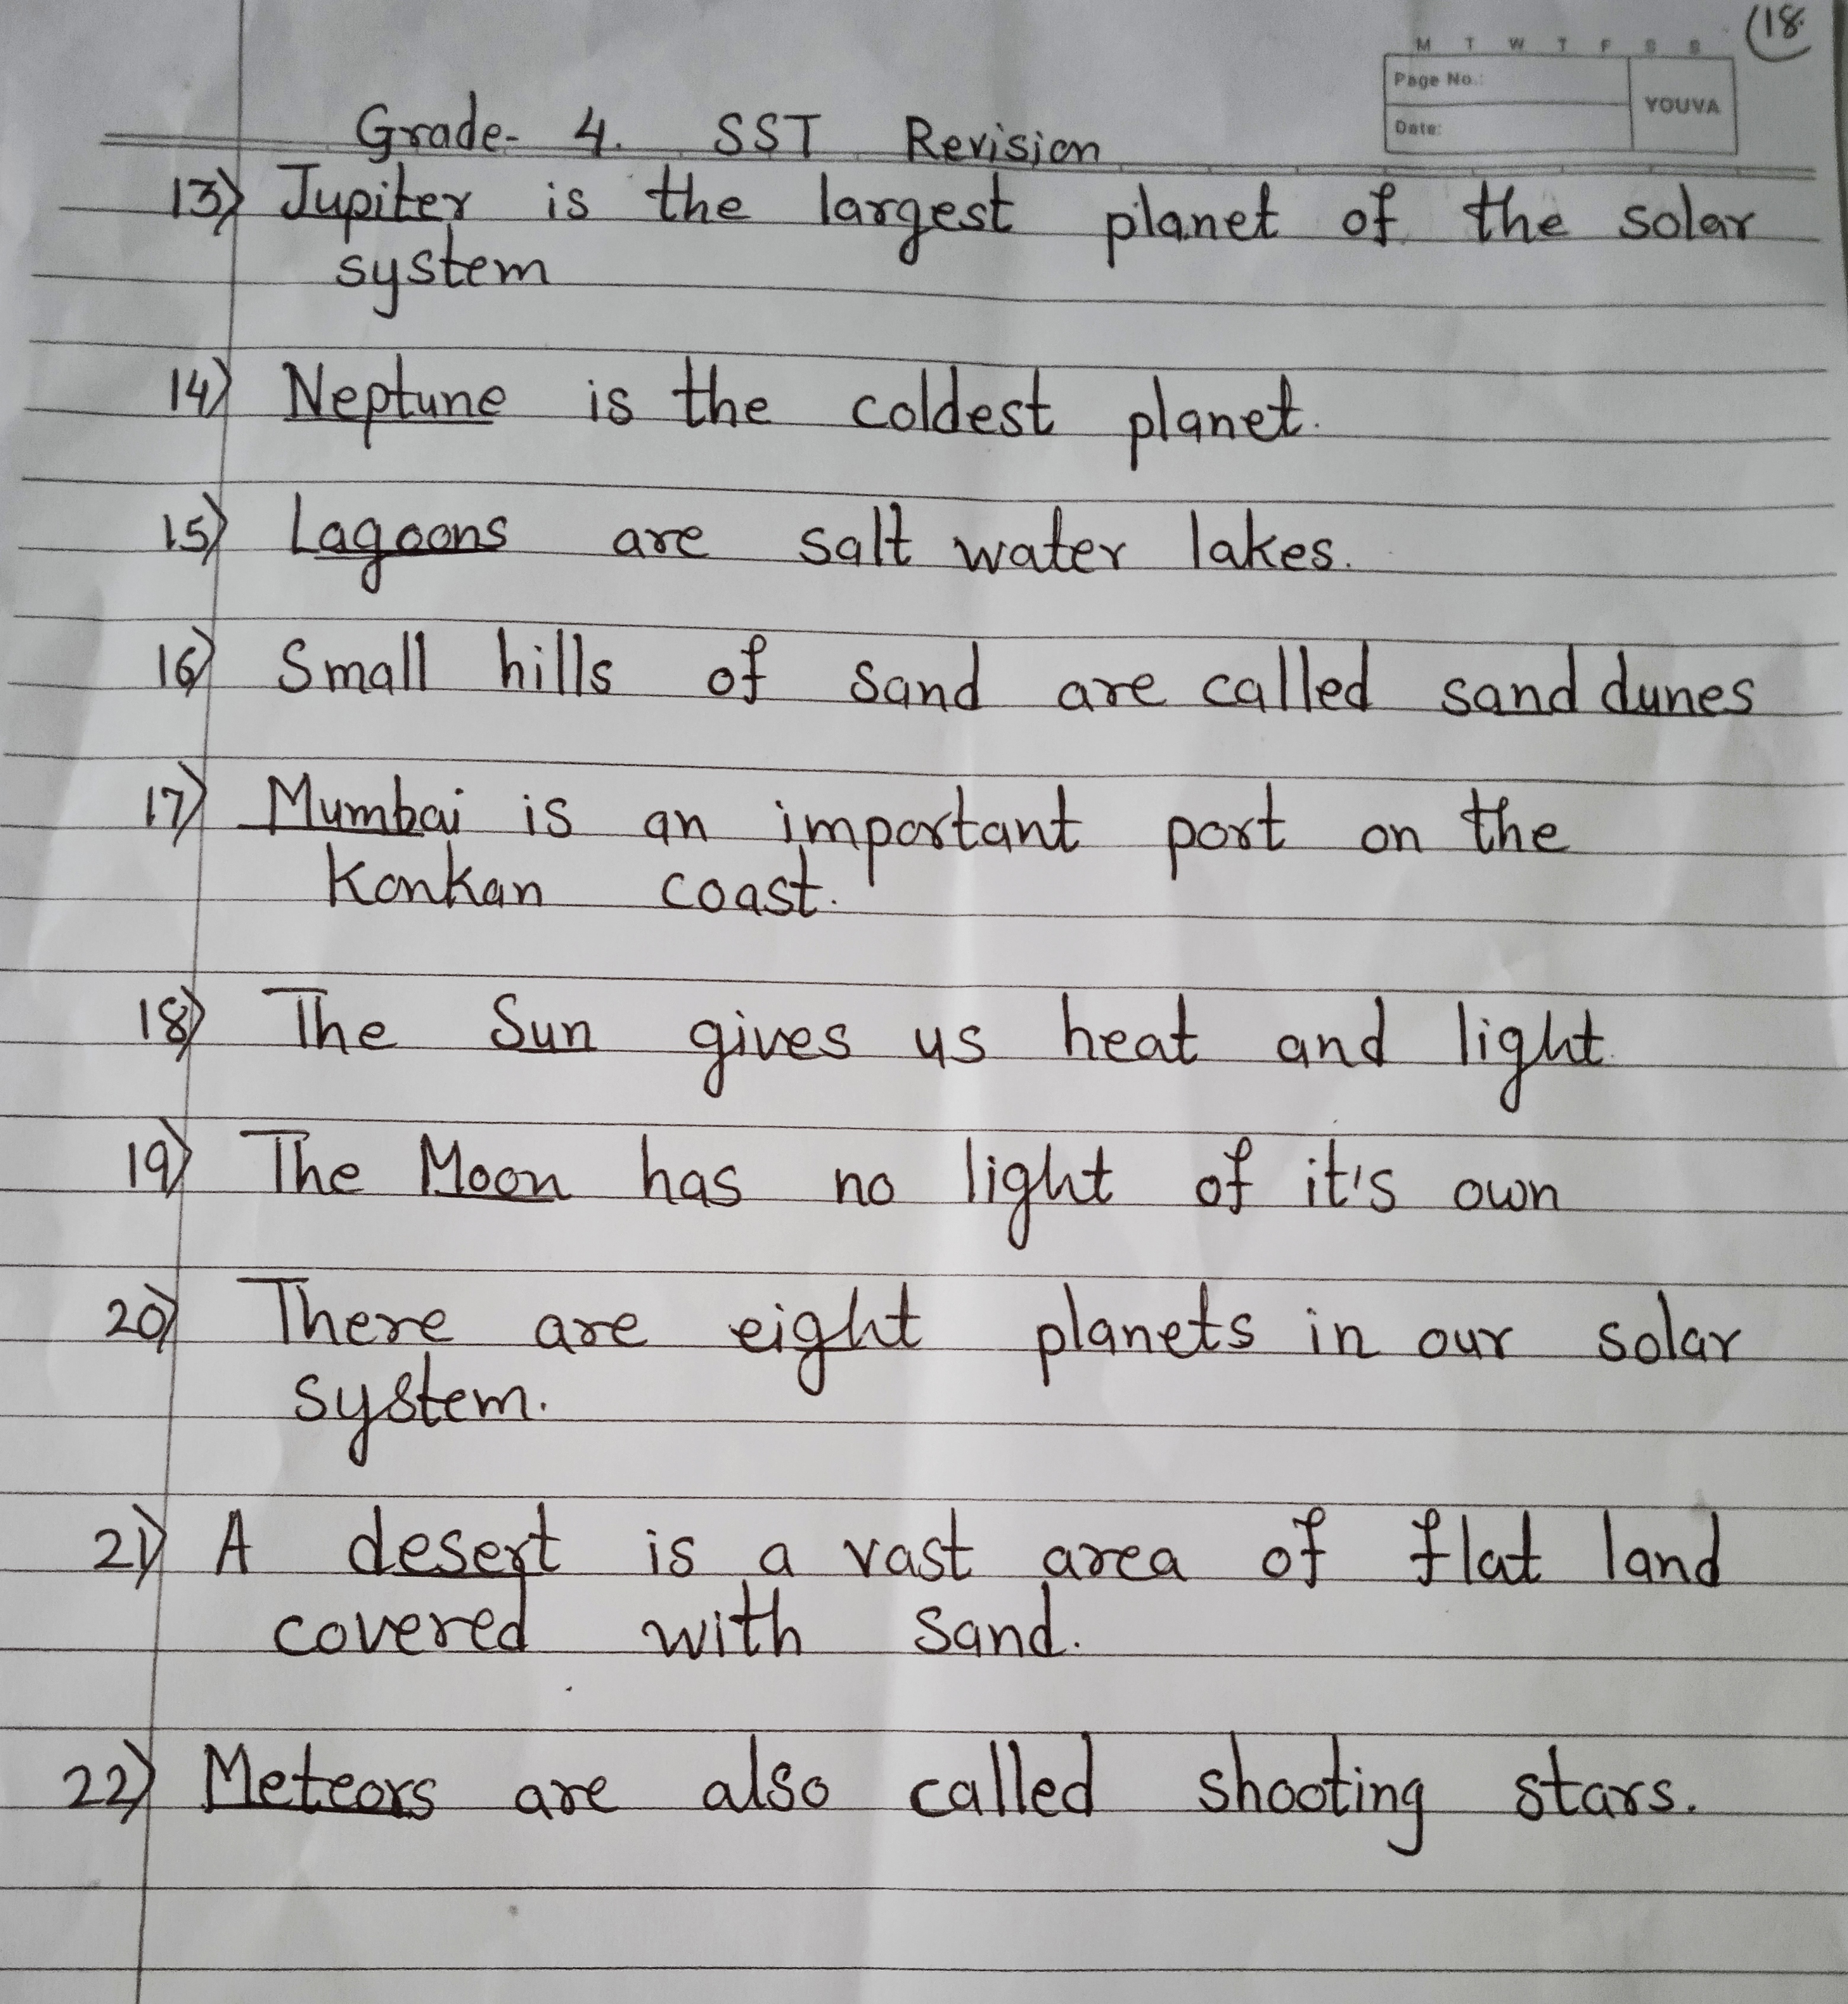 18
M T W T F S S
Page No.:
YOUVA
Date:
Grade- 4. SST Revision
13) Jupiter is the largest planet of the solar
system
14) Neptune is the coldest planet.
15) Lagoons are salt water lakes.
16) Small hills of sand are called sand dunes
17) Mumbai is an important port on the
Konkan coast.
18) The Sun gives us heat and light.
19) The Moon has no light of it's own
20) There are eight planets in our solar
system.
21) A desert is a vast area of flat land
covered with sand.
22) Meteors are also called shooting stars.